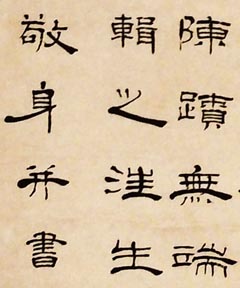 陳蹟無端
輯之淮生
敬身并書